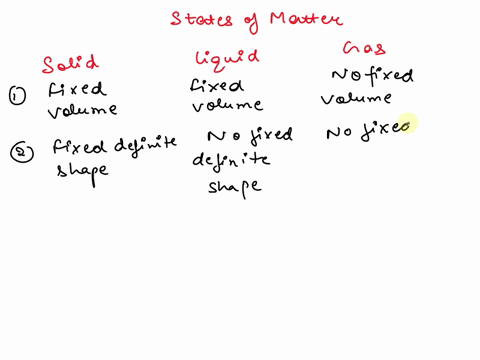 States of Matter
Solid Liquid Gas
① Fixed volume Fixed volume No fixed volume
② Fixed definite shape No fixed definite shape No fixed